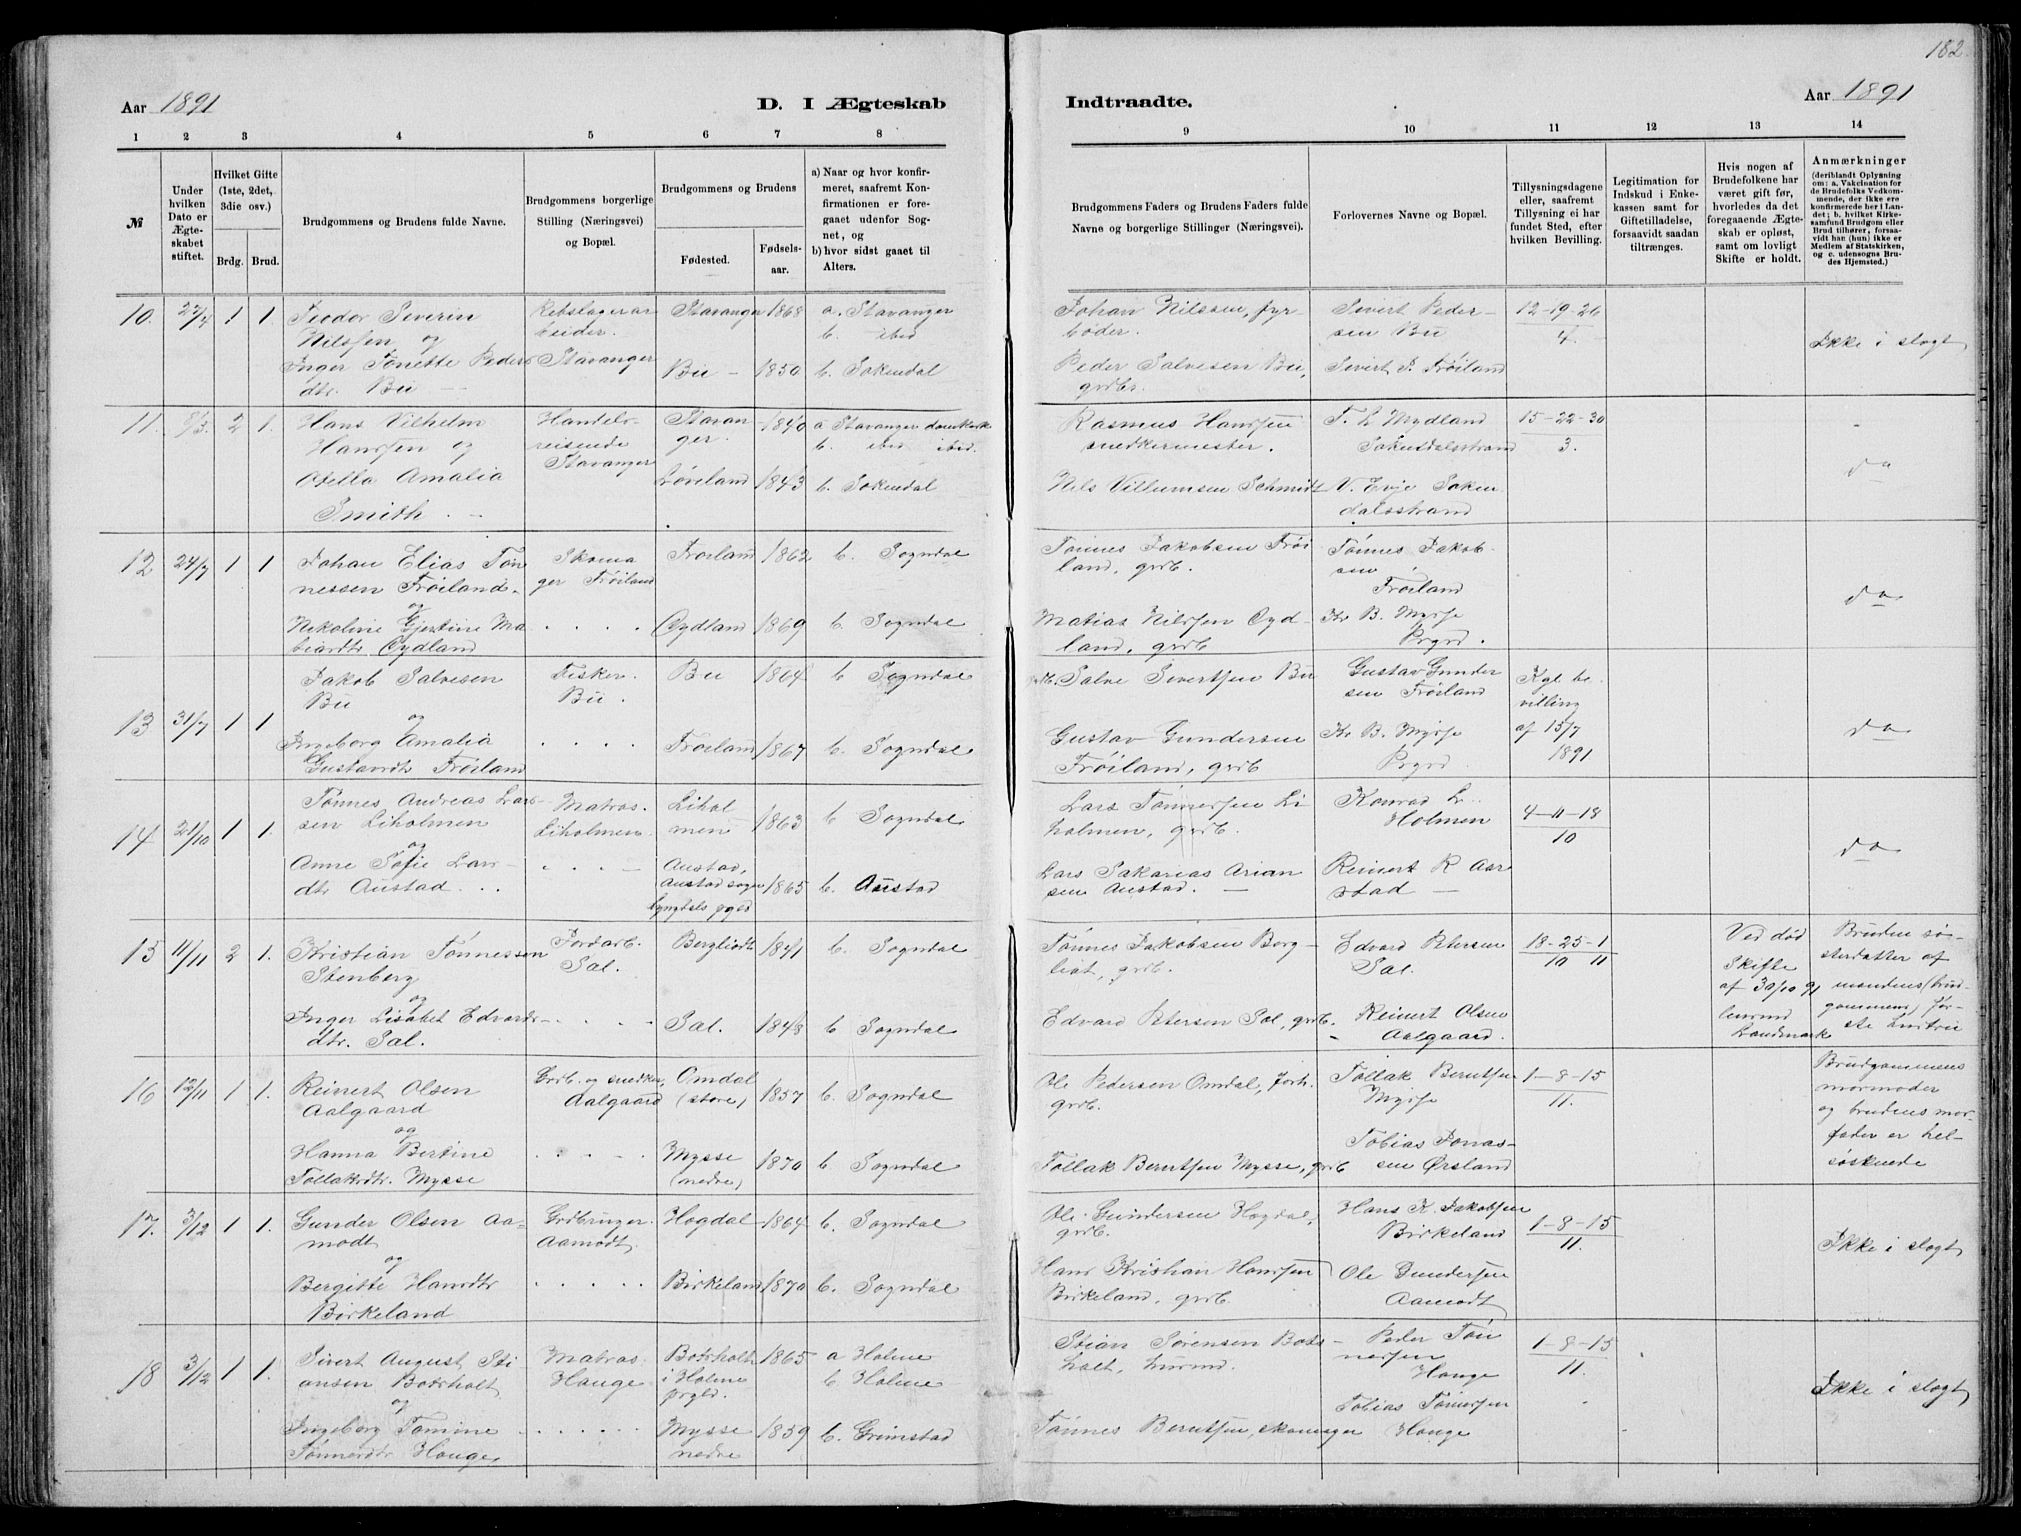 182
Aar 1891
D. I Ægteskab
Indtraadte.
Aar 1891
1 2 3 4 5 6 7 8
9 10 11 12 13 14
№
Under hvilken Dato er Ægteskabet stiftet.
Hvilket Gifte (1ste, 2det, 3die osv.)
Brdg. Brud.
Brudgommens og Brudens fulde Navne.
Brudgommens borgerlige Stilling (Næringsvei) og Bopæl.
Brudgommens og Brudens
Fødested. Fødselsaar.
a) Naar og hvor konfirmeret, saafremt Konfirmationen er foregaaet udenfor Sognet, og
b) hvor sidst gaaet til Alters.
Brudgommens Faders og Brudens Faders fulde Navne og borgerlige Stillinger (Næringsvei).
Forlovernes Navne og Bopæl.
Tillysningsdagene eller, saafremt Tillysning ei har fundet Sted, efter hvilken Bevilling.
Legitimation for Indskud i Enkekassen samt for Giftetilladelse, forsaavidt saadan tiltrænges.
Hvis nogen af Brudefolkene har været gift før, hvorledes da det foregaaende Ægteskab er opløst, samt om lovligt Skifte er holdt.
Anmærkninger (deriblandt Oplysning om: a. Vakcination for de Brudefolks Vedkommende, der ikke ere konfirmerede her i Landet; b. hvilket Kirkesamfund Brudgom eller Brud tilhører, forsaavidt han (hun) ikke er Medlem af Statskirken, og c. udensogns Brudes Hjemsted.)
10. 1 1.
Teodor Severin
Nilssen og
Inger Tonette Peders
dtr. Bu —
Rebslagerar
beider.
Stavanger
Stavanger 1868 a. Stavanger
b. ibid
Bu — 1850 b. Sokendal
Johan Nilssen, fyr
bøder.
Peder Salvesen Bu,
grdbr.
Sivert Peder-
sen Bu
Sivert P. Frøiland
12-19-26
4.
Ikke i slægt
11. 2 1.
Hans Vilhelm
Hanssen og
Otella Amalia
Smith. —
Handels-
reisende
Stavanger
Stavan
ger. 1840 a Stavanger domkirke
b. ibid ibid.
1843 b. Sokendal
Rasmus Hanssen
snedkermester.
Nils Villumsen Schmidt
T. L Mydland
Sokendalsstrand
V. Evje Soken
dalsstrand
15-22-30
3.
do
12 24/7 1 1
Johan Elias Tøn
nessen Frøiland.
og
Nikoline Ma
Oydland
Skoma
ger Frøiland
. . . .
Frøiland 1862 b. Sogndal
Oydland 1869 b. Sogndal
Tønnes Jakobsen Frøi
land, grdb.
Matias Nilssen Oyd-
land, grdb
Tønnes Jakob-
sen
Frøiland
Kr B. Mysse
Prgrd.
do
13 31/7 1 1
Jakob Salvesen
Bu
og
Ingeborg Amalia
Gustavdtr Frøiland
Fisker.
Bu.
. . . .
Bu 1864 b Sogndal
Frøiland 1867 b. Sogndal
grdb. Salve Sivertsen Bu
Gustav Gundersen
Frøiland, grdb
Gustav Gunder
sen Frøiland
Kr B. Mysse
Prgrd
Kgl be-
villing
af 15/7
1891
do
14 21/10 1 1.
Tønnes Andreas Lars-
sen Liholmen
og
Anne Sofie Lars-
dtr Austad. . .
Matros.
Liholmen
. . . —
Lihol
men 1863 b Sogndal
Austad,
Austad sogn 1865 b. Austad
Lyngdals pgld
Lars Tønnessen Li
holmen, grdb.
Lars Sakarias Arian
sen Austad. —
Konrad L..
Holmen
Reinert R Aar
stad —
4-11-18
10
do
15 11/11 2 1.
Kristian Tønnessen
Stenberg
og
Inger Lisabet Edvards-
dtr. Sal.
Jordarb.
Sal.
. . . .
Bergliodt 1841 b. Sogndal
Sal. 1848 b Sogndal
Tønnes Jakobsen Berg-
liot, grdb.
Edvard Petersen Sal, grdb.
Edvard Petersen
Sal.
Reinert Olsen
Aalgaard.
18-25-1
10 11
Ved død
Skifte
af 30/10 91
Lensmand
Landmark
Bruden sø-
sterdatter af
mandens (brud-
gommens) før-
ste hustru
16 12/11 1 1.
Reinert Olsen
Aalgaard
og
Hanna Bertine
Tollaksdtr. Mysse
Grdb. og snedker,
Aalgaard
. . . .
Omdal
(store) 1857 b. Sogndal
Mysse
(nedre) 1870 b Sogndal
Ole Pedersen Omdal, forh.
grdb.
Tollak Berntsen Mysse, grdb
Tollak Berntsen
Mysse
Tobias Jonas-
sen Ørsland
1-8-15
11.
Brudgommens
mormoder
og brudens mor-
fader er hel-
søskende
17. 3/12 1 1.
Gunder Olsen Aa-
modt
og
Bergitte Hansdtr
Birkeland
Grdbruger.
Aamodt
. . . . .
Hogdal 1864 b. Sogndal
Birkeland 1870 b. Sogndal
Ole Gundersen Hogdal,
grdb.
Hans Kristian Hanssen
Birkeland, grdb.
Hans K. Jakobsen
Birkeland
Ole Gundersen
Aamodt
1-8-15
11.
Ikke i slægt
18 3/12 1 1.
Sivert August Sti
ansen Botsholt
og
Ingeborg Tomine
Tønnesdtr Hauge,
Matros
Hauge
. . . . .
Botsholt 1865 a Holme
i Holme b Holme
prgld.
Mysse 1859 b. Grimstad
nedre
Stian Sørensen Bots-
holt, husmd.
Tønnes Berntsen, skomager
Peder Tøn
nessen
Hauge
Tobias Tønnessen
Hauge
1-8-15
11.
Ikke i slægt